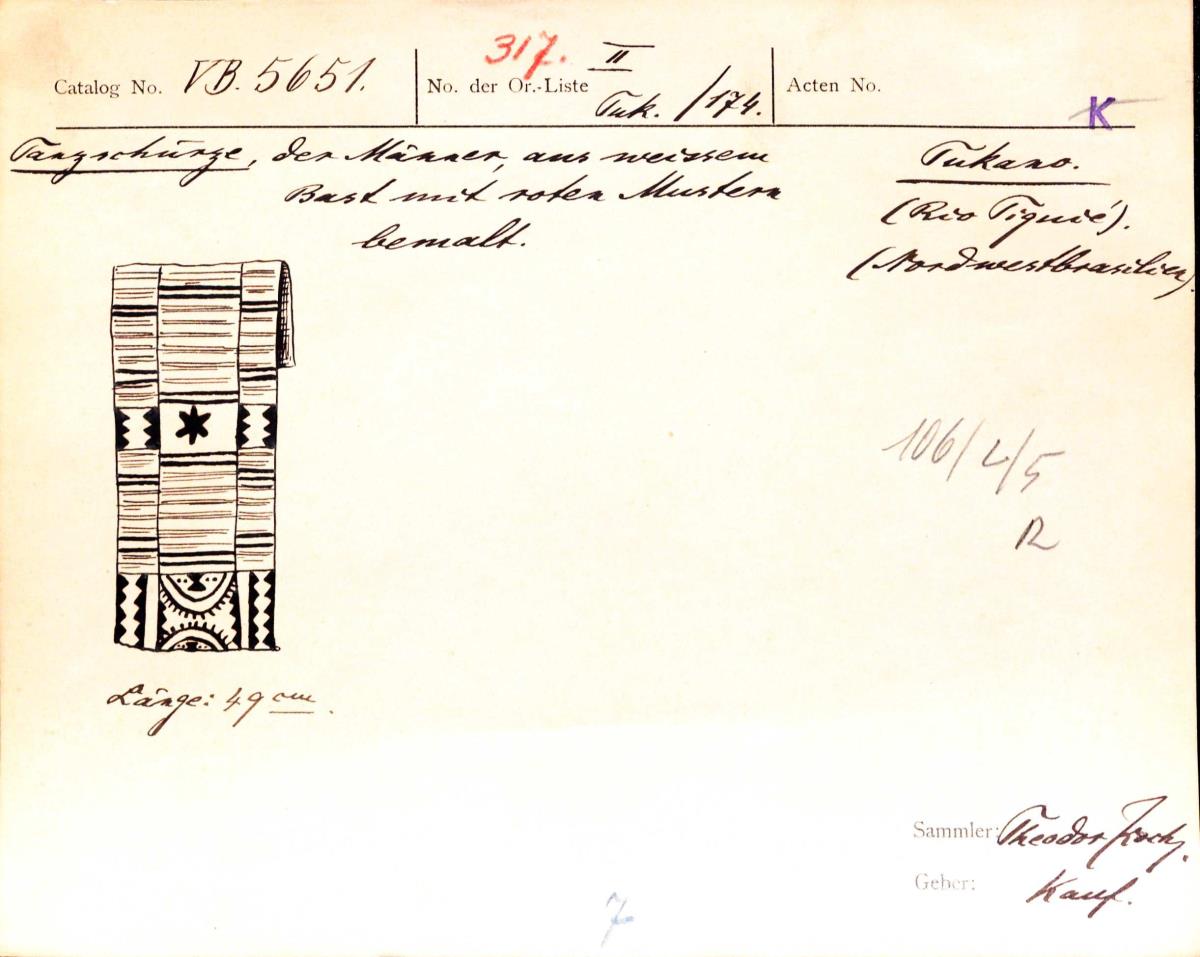 317. II
Catalog No. VB. 5651. No. der Or.-Liste Tuk. /174. Acten No.
K
Tanzschürze, der Männer, aus weissem
Bast mit roten Mustern
bemalt.
Tukano.
(Rio Tiquié).
(Nordwestbrasilien).
106/2/5
R
Länge: 49 cm.
Sammler: Theodor Koch.
Geber: Kauf.
7